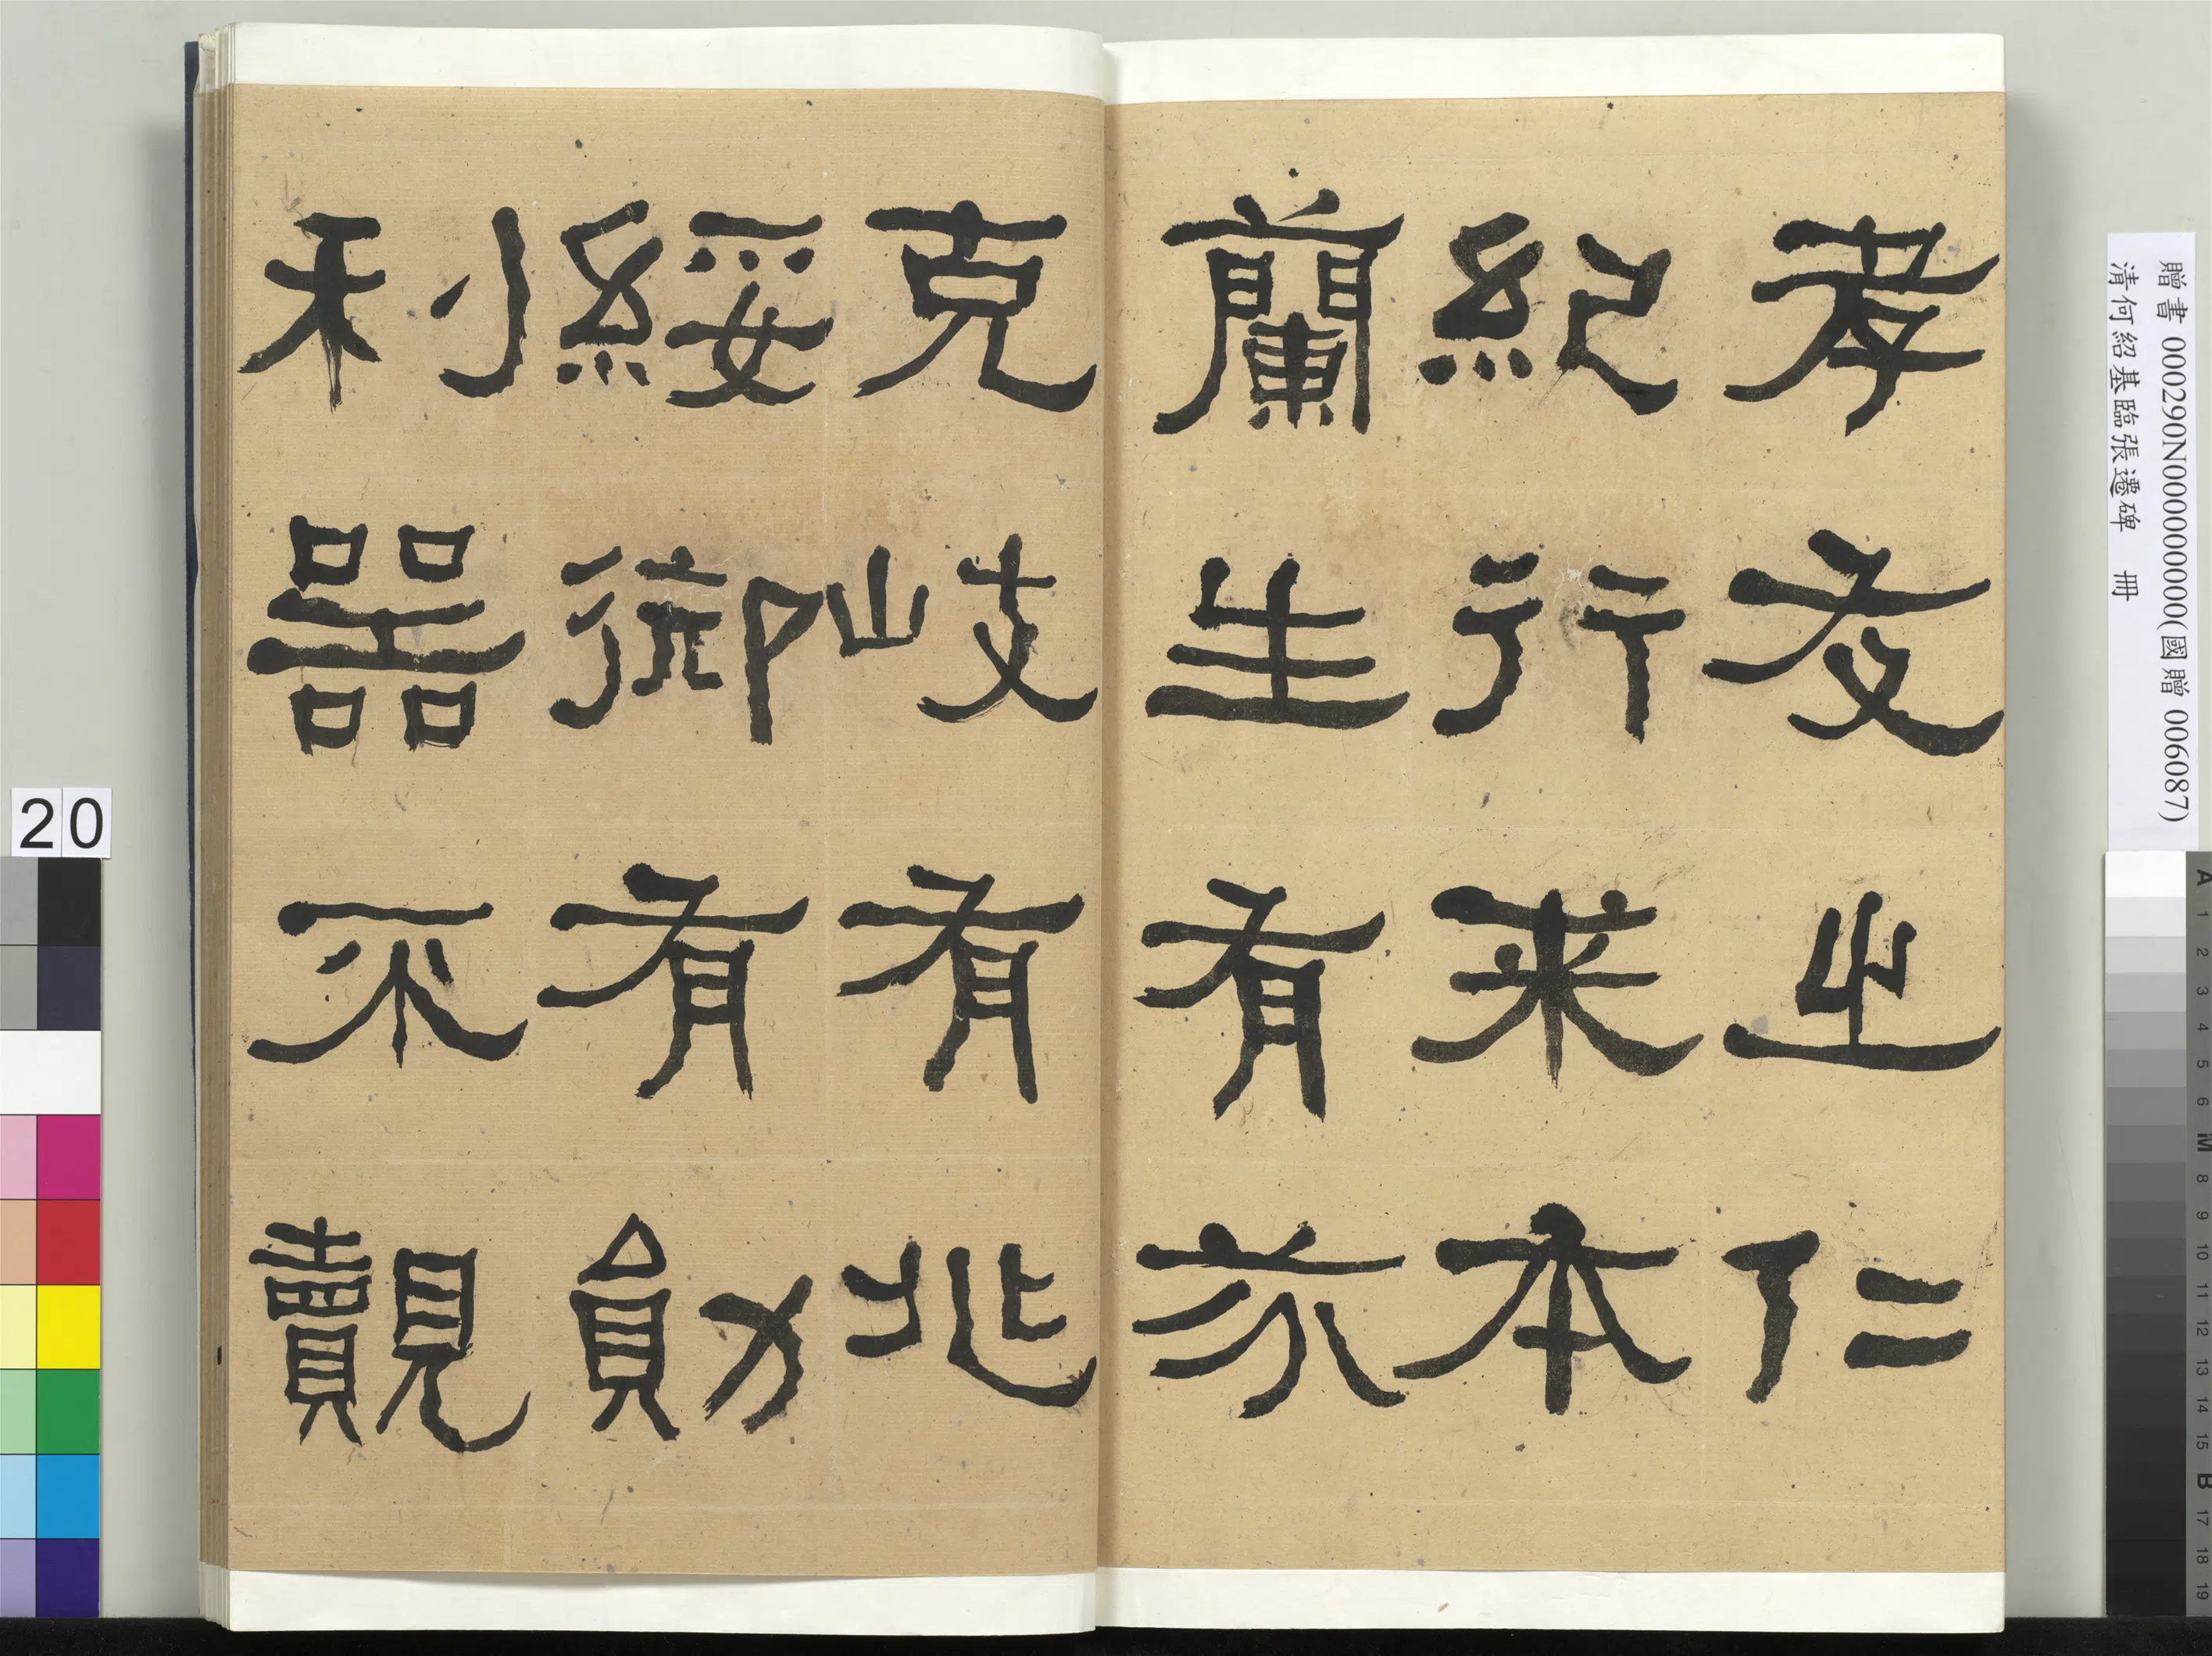 孝友之仁
紀行来本
蘭生有芬
克岐有兆
綏御有勛
利器不覿
贈書 000290N000000000(國贈 006087)
清何紹基臨張遷碑 冊
20
A 1 2 3 4 5 6 M 8 9 10 11 12 13 14 15 B 17 18 19